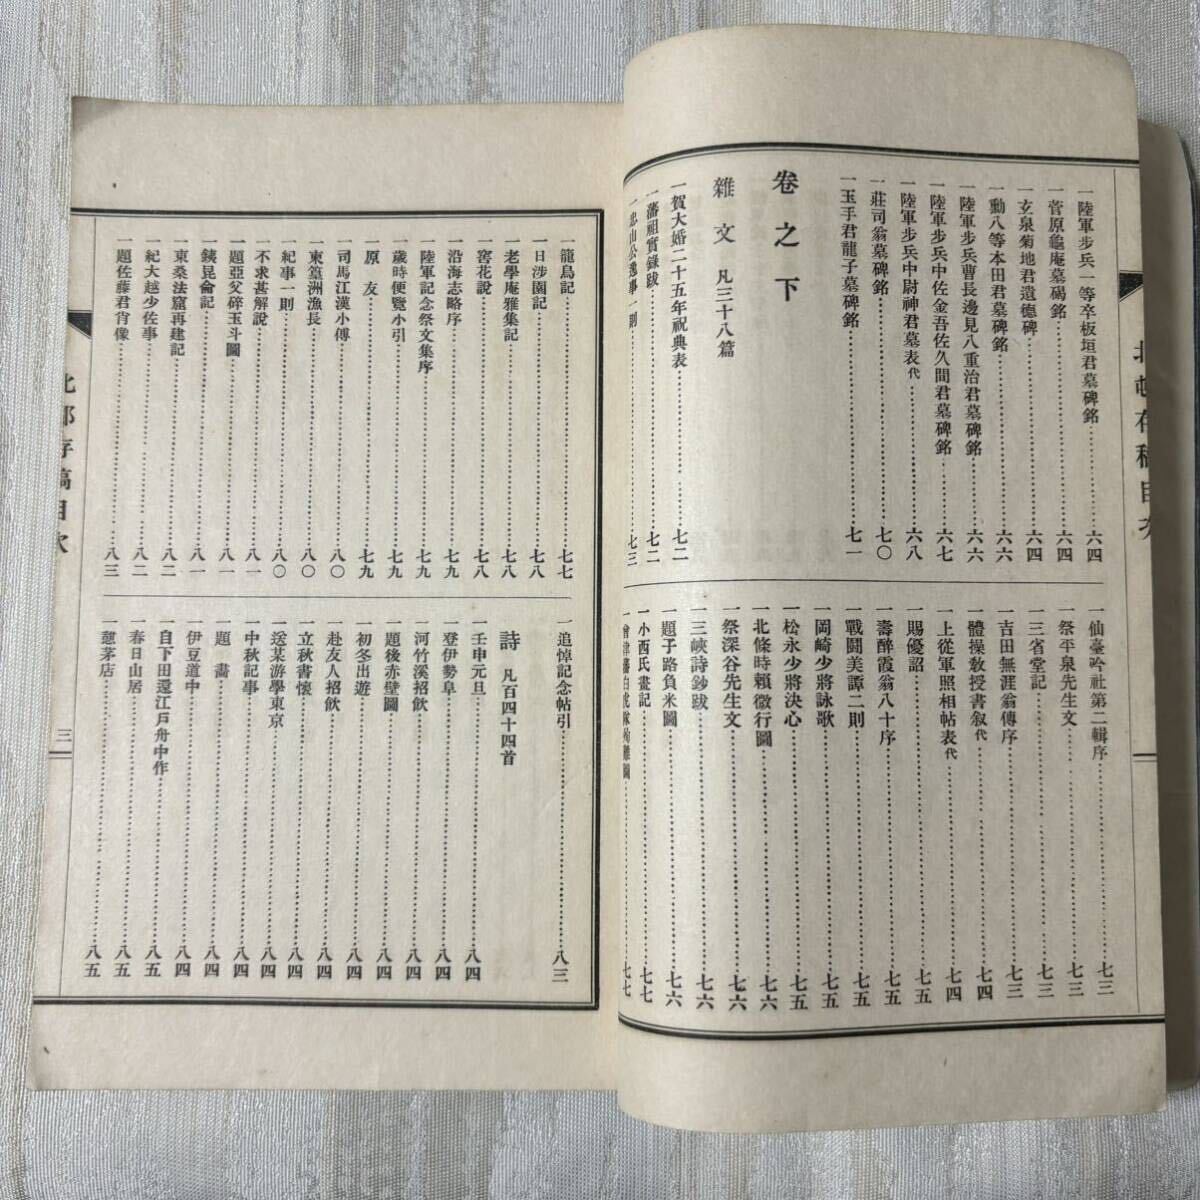 一陸軍步兵一等卒板垣君墓碑銘 六四
一菅原龜庵墓碣銘 六四
一玄泉菊地君遺德碑 六四
一勳八等本田君墓碑銘 六六
一陸軍步兵曹長邊見八重治君墓碑銘 六六
一陸軍步兵中佐金吾佐久間君墓碑銘 六七
一陸軍步兵中尉神君墓表代 六八
一莊司翁墓碑銘 七〇
一玉手君龍子墓碑銘 七一
卷之下
雜文 凡三十八篇
一賀大婚二十五年祝典表 七二
一藩祖實錄跋 七二
一忠山公逸事一則 七三
一仙臺吟社第二輯序 七三
一祭平泉先生文 七三
一三省堂記 七三
一吉田無涯翁傳序 七三
一體操敎授書叙代 七四
一上從軍照相帖表代 七四
一賜優詔 七五
一壽醉霞翁八十序 七五
一戰鬪美譚二則 七五
一岡崎少將詠歌 七五
一松永少將決心 七五
一北條時賴微行圖 七六
一祭深谷先生文 七六
一三峽詩鈔跋 七六
一題子路負米圖 七六
一小西氏畫記 七七
一會津藩白虎隊殉難圖 七七
一龍烏記 七七
一日涉園記 七八
一老學庵雅集記 七八
一窖花說 七八
一沿海志略序 七九
一陸軍記念祭文集序 七九
一歲時便覽小引 七九
一原友 七九
一司馬江漢小傳 八〇
一東篁洲漁長 八〇
一紀事一則 八〇
一不求甚解說 八一
一題亞父碎玉斗圖 八一
一錢昆侖記 八一
一東桑法窟再建記 八二
一紀大越少佐事 八二
一題佐藤君肖像 八三
一追悼記念帖引 八三
詩 凡百四十四首
一壬申元旦 八四
一登伊勢阜 八四
一河竹溪招飮 八四
一題後赤壁圖 八四
一初冬出遊 八四
一赴友人招飮 八四
一立秋書懷 八四
一送某游學東京 八四
一中秋記事 八四
一題畵 八四
一伊豆道中 八四
一自下田還江戶舟中作 八五
一春日山居 八五
一憩茅店 八五
三